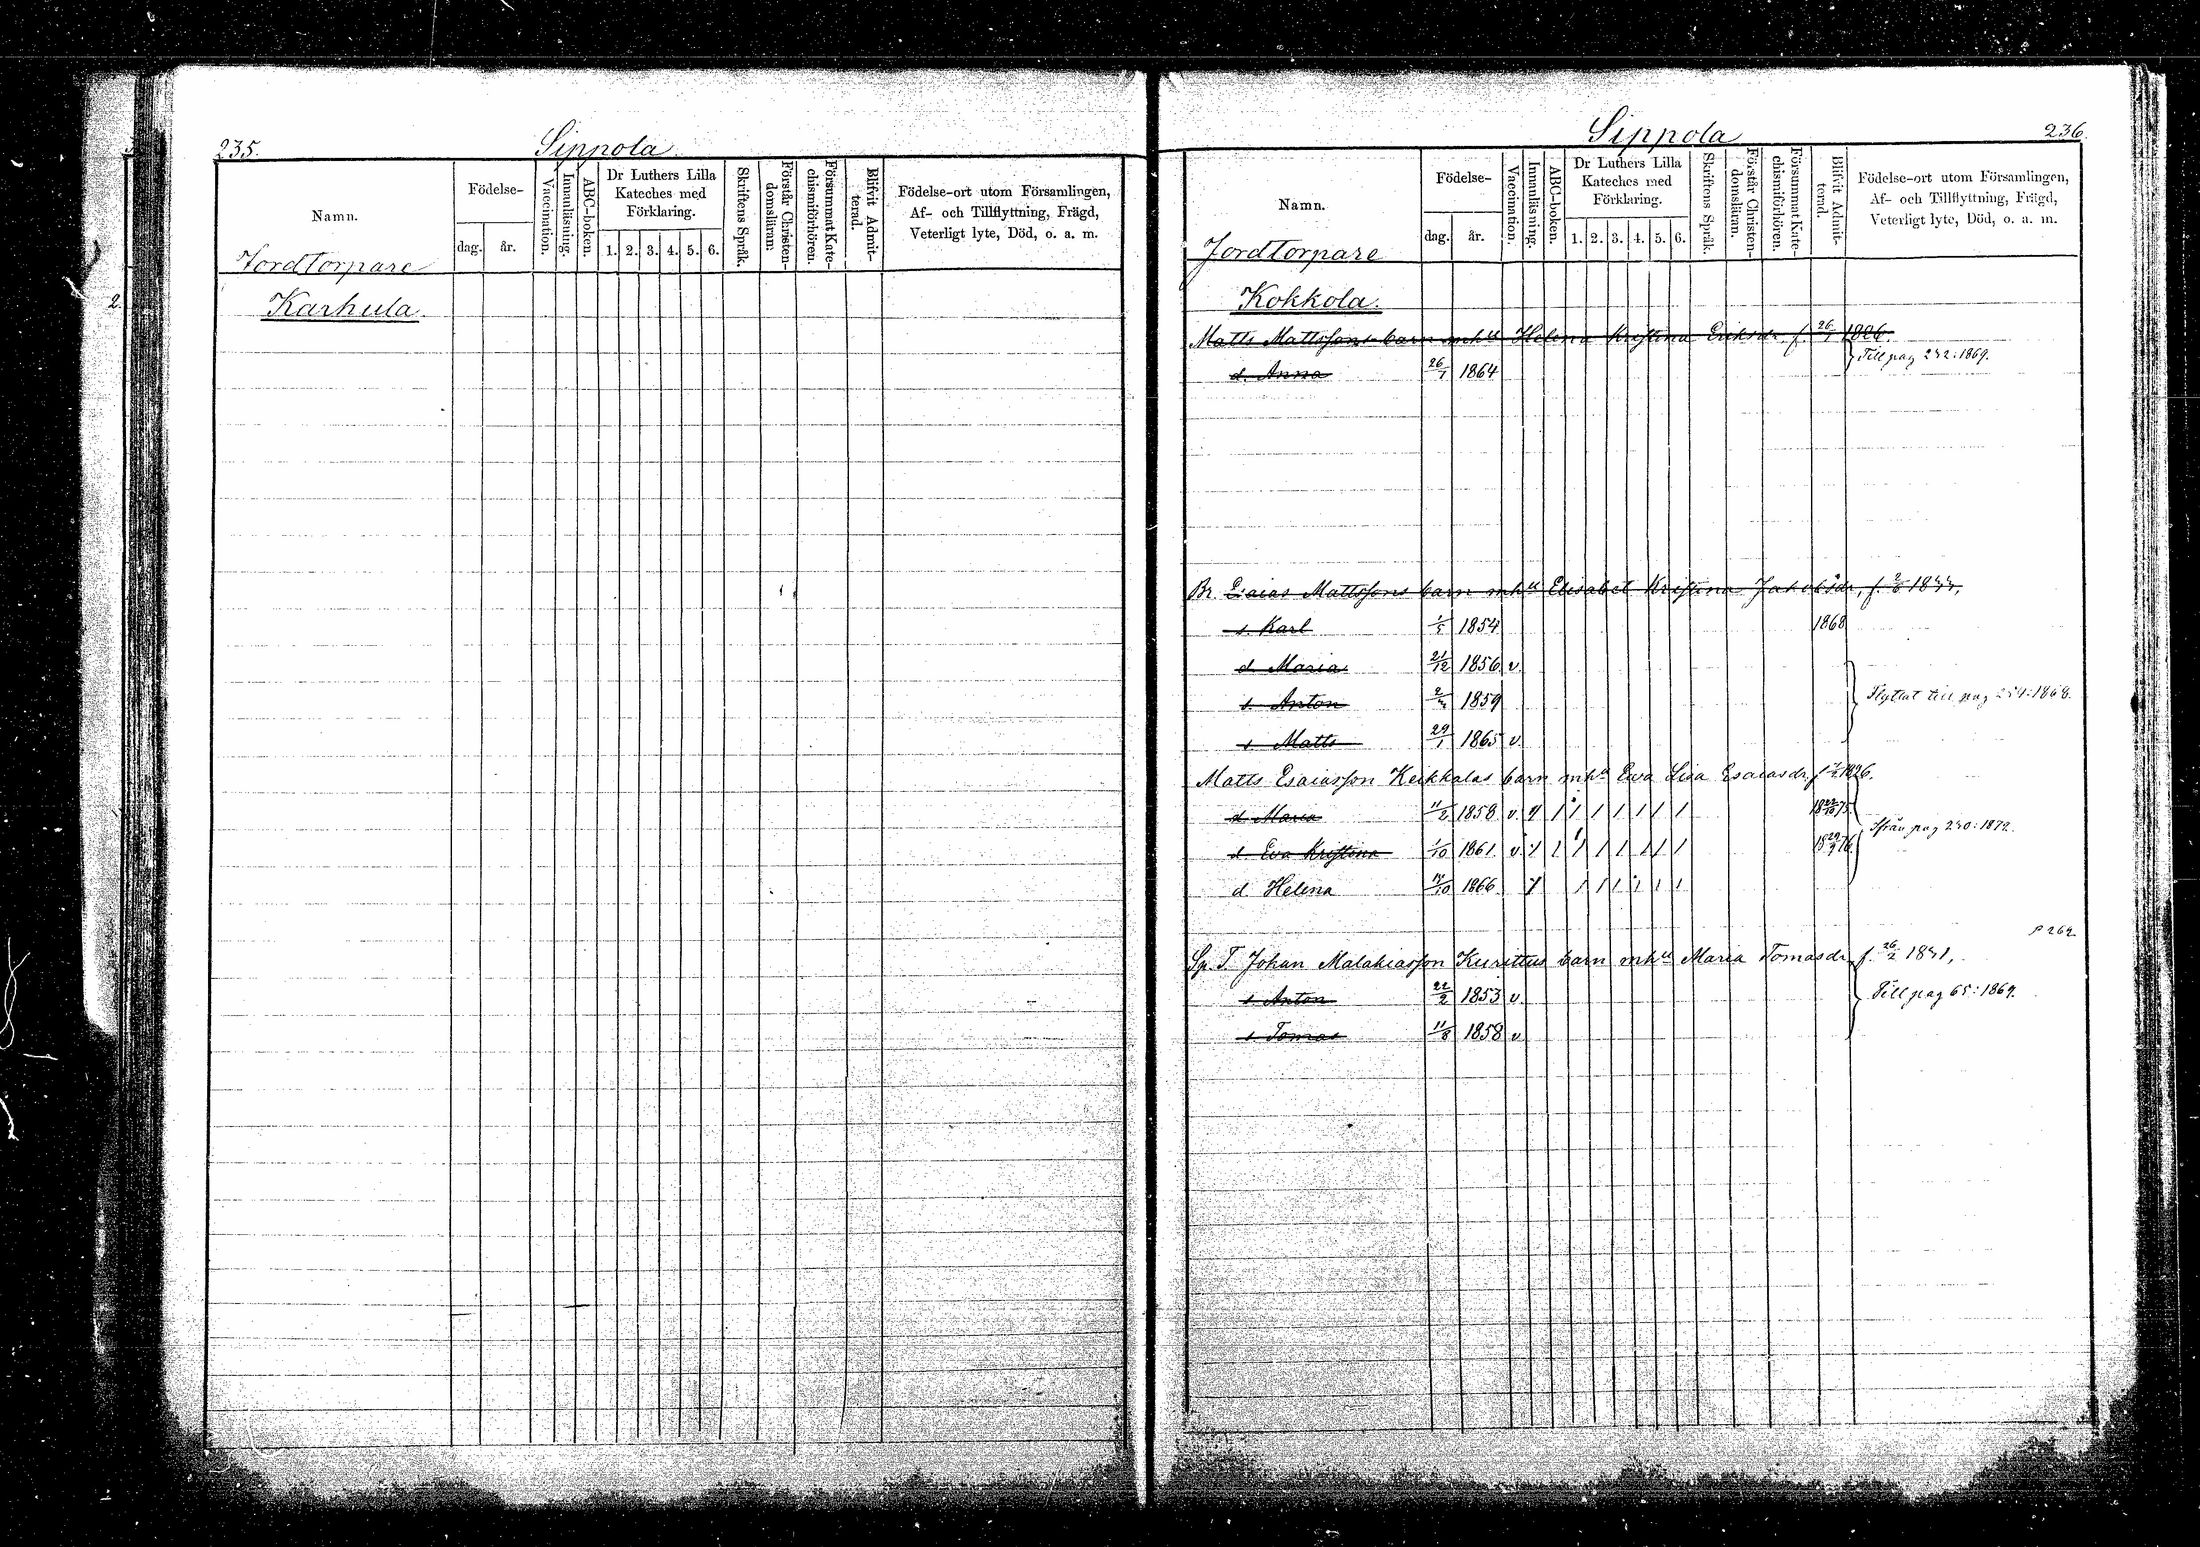 235.
Sippola
Namn.
Födelse-
dag. år.
Vaccination.
Innanläsning.
ABC-boken.
Dr Luthers Lilla
Kateches med
Förklaring.
1. 2. 3. 4. 5. 6.
Skriftens Språk.
Förstår Christen-
domsläran.
Försummat Kate-
chismiförhören.
Blifvit Admit-
terad.
Födelse-ort utom Församlingen,
Af- och Tillflyttning, Frägd,
Veterligt lyte, Död, o. a. m.
Jordtorpare
Karhula.
2.
Sippola
236.
Namn.
Födelse-
dag. år.
Vaccination.
Innanläsning.
ABC-boken.
Dr Luthers Lilla
Kateches med
Förklaring.
1. 2. 3. 4. 5. 6.
Skriftens Språk.
Förstår Christen-
domsläran.
Försummat Kate-
chismiförhören.
Blifvit Admit-
terad.
Födelse-ort utom Församlingen,
Af- och Tillflyttning, Frägd,
Veterligt lyte, Död, o. a. m.
Jordtorpare
Kokkola.
Matts Mattssons barn mhu Helena Kristina Eriksdr. f. 1826.
d. Anna 26/1 1864 Till pag 242:1869.
Br. Esaias Mattssons barn mhu Elisabet Kristina Jakobsdr, f.
s. Karl 1/5 1854 1868
d. Maria 21/12 1856 v
s. Anton 1859 Flyttat till pag
s. Matts 29/1 1865 v
Matts Esaiasson Keikkalas barn mhu Ewa Lisa Esaiasdr f 1826.
d. Maria 11/2 1858 v 18 22/10 75
d. Eva Kristina 1/10 1861 v 18 29/9 76 Ifrån pag 240:1872.
d. Helena 14/10 1866
p 262
Sp. T. Johan Malakiasson Kurittus barn mhu Maria Tomasdr f. 26/2
s Anton 22/2 1853 v Till pag 65:1869.
s Tomas 11/8 1858 v